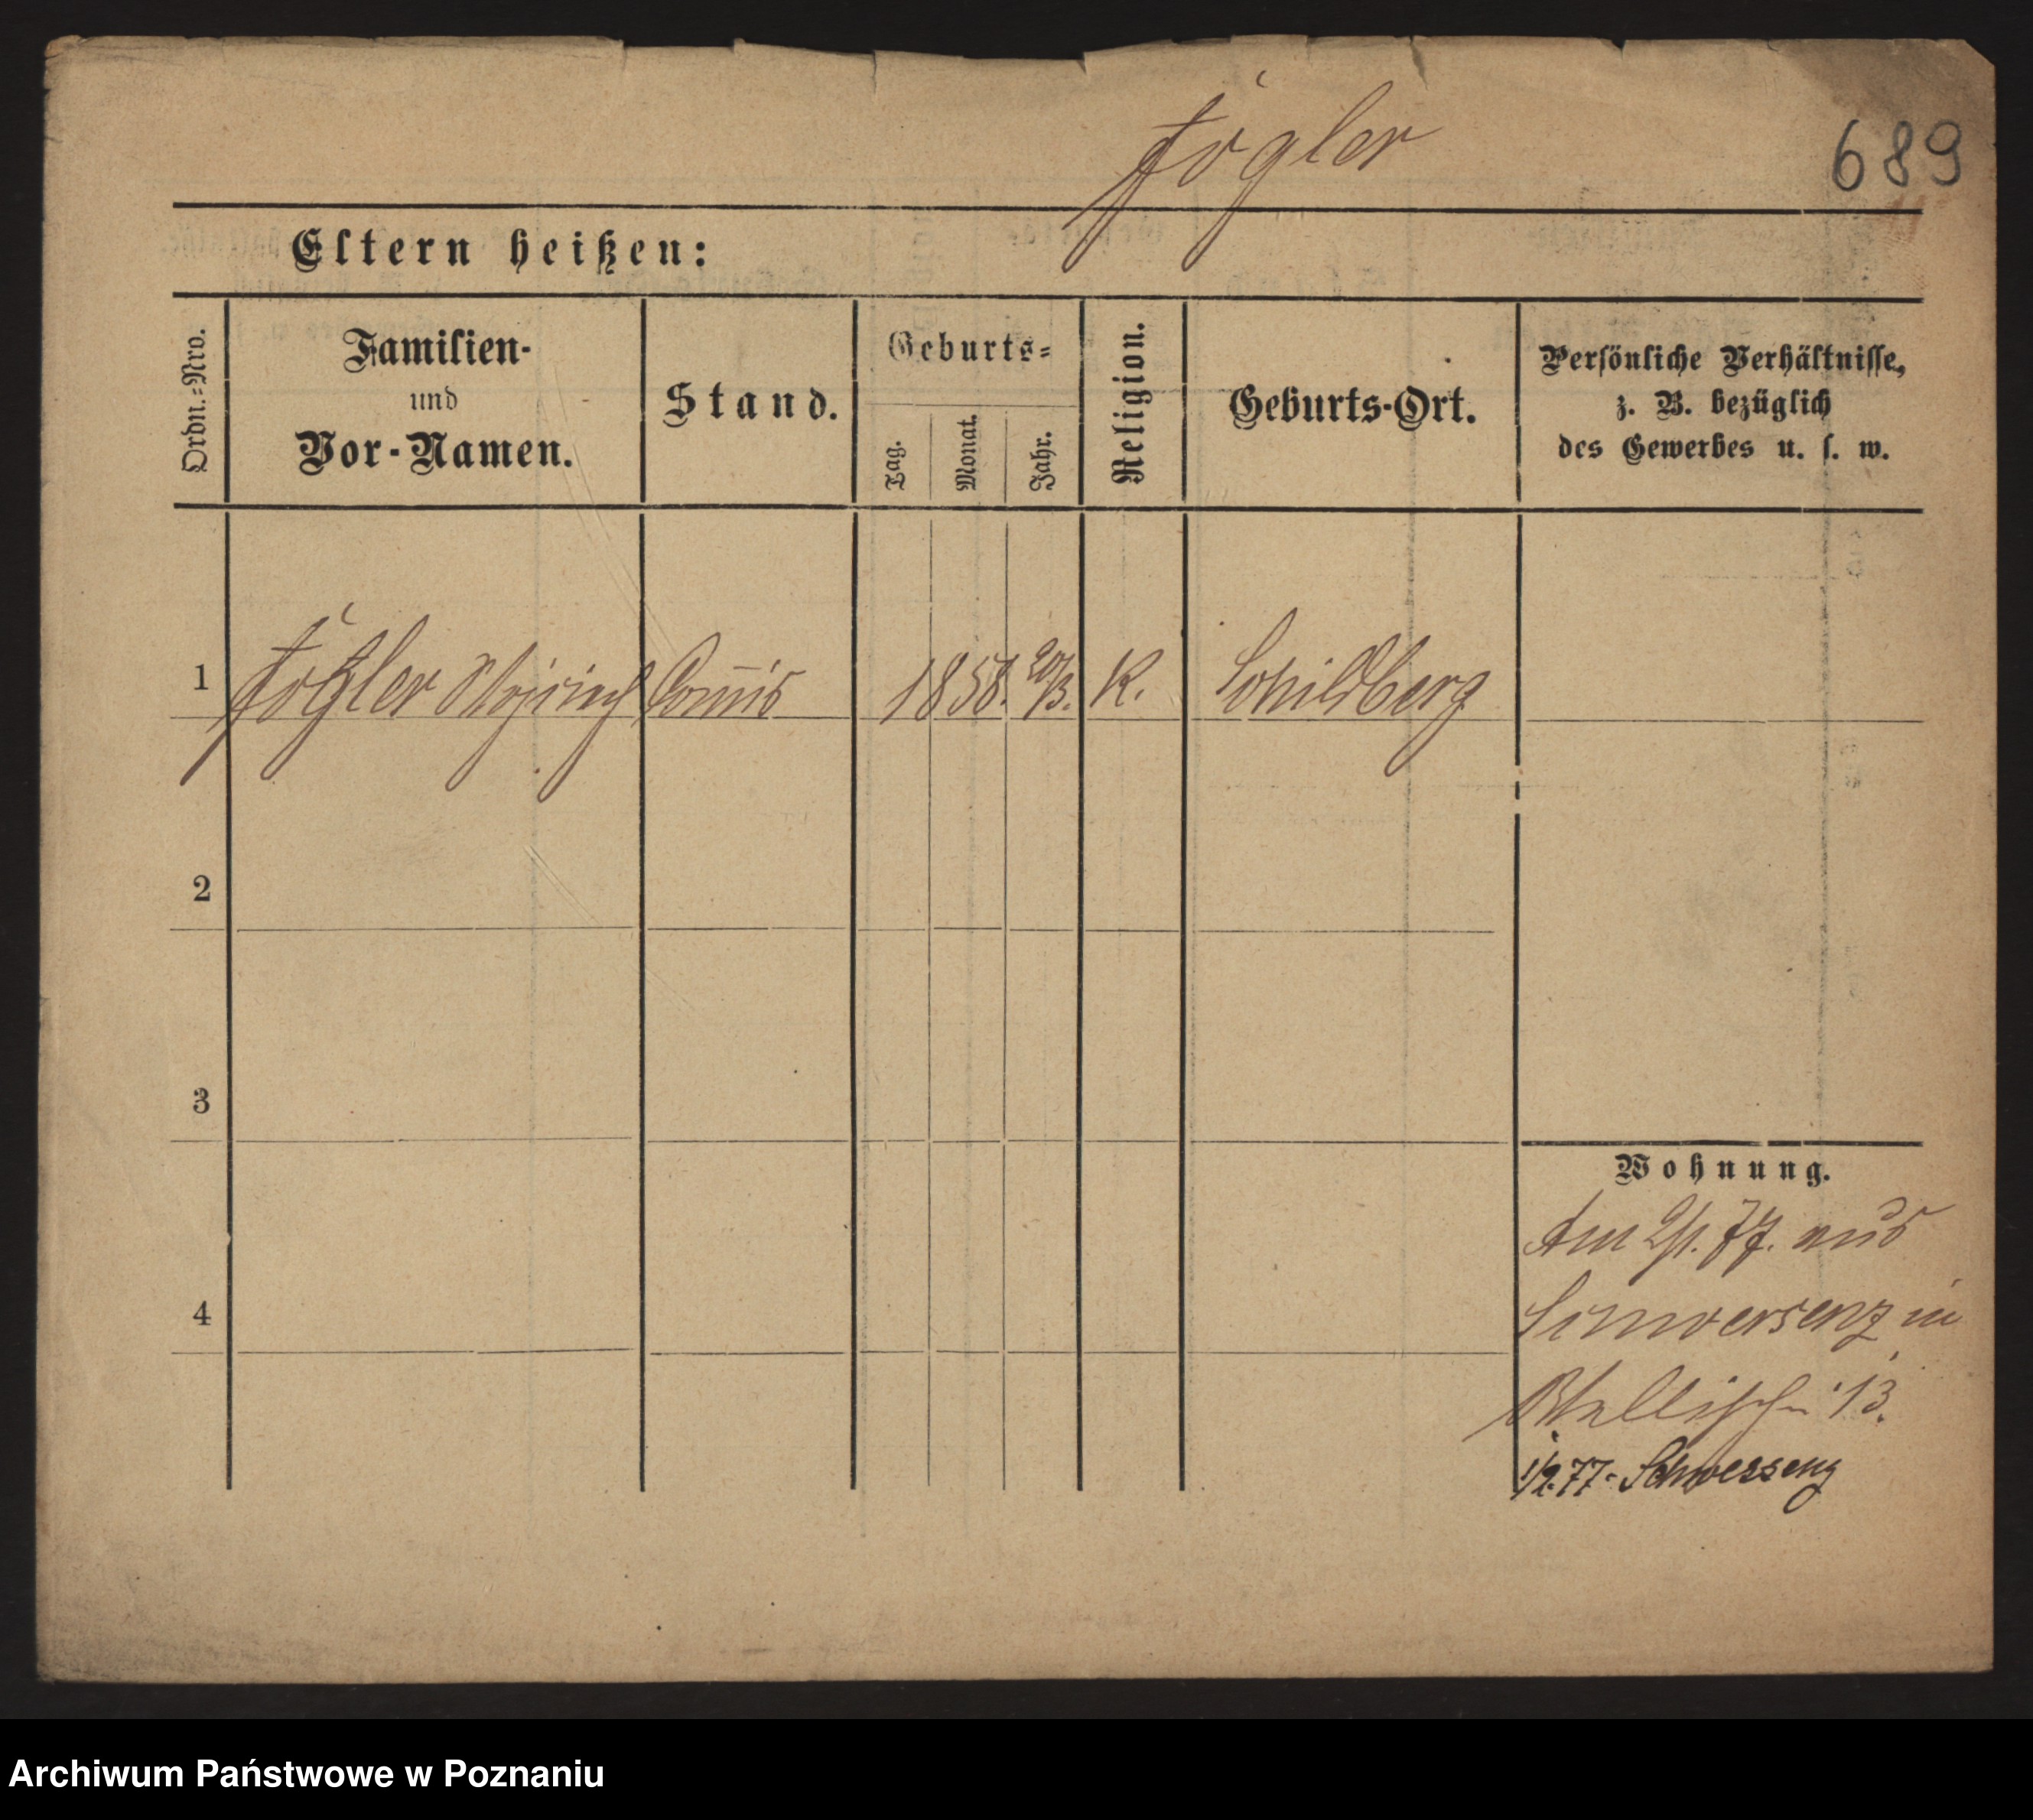 Fögler
689
Eltern heißen:
Ordn.-Nro.
Familien-
und
Vor-Namen.
Stand.
Geburts-
Tag.
Monat.
Jahr.
Religion.
Geburts-Ort.
Persönliche Verhältnisse,
z. B. bezüglich
des Gewerbes u. s. w.
1 Commis 1858. 20/3. K. Schildberg
2
3
Wohnung.
Am 2/1. 77. aus
4
Schwersenz in
Wallischei 13.
1/2.77. Schwersenz
Archiwum Państwowe w Poznaniu